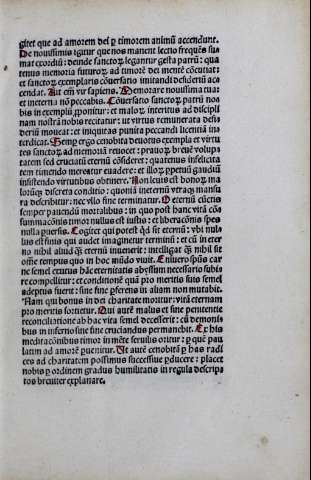 gitet que ad amorem dei ⁊ timorem animū accendunt.
De nouissimis igitur que nos manent lectio frequēs su
mat exordiū: deinde sanctoꝝ legantur gesta patrū: qua
tenus memoria futuroꝝ ad timorē dei mentē cōcutiat; et
sanctoꝝ exemplaris cōuersatio imitandi desideriū acc
endat. Ait em̄ vir sapiens. Memorare nouissima tua:
et ineternū nō peccabis. Cōuersatio sanctoꝝ patrū no
bis in exemplū ꝓponitur: et maloꝝ interitus ad discipli
nam nostrā nobis recitatur: ut virtus remunerata desi
deriū moueat: et iniquitas punita peccandi licentiā in
terdicat. Semꝑ ergo cenobita deuotus exempla et virtu
tes sanctoꝝ ad memoriā reuocet: prauoꝝ breuē volupta
tatem sed cruciatū eternū cōsideret: quatenus infelicita
tem timendo mereatur euadere: et illoꝝ ꝑpetuū gaudiū
insistendo virtutibus obtinere. Non leuis est bonoꝝ ma
lorūqꝫ discreta conditio: quoniā ineternū vtraqꝫ mansu
ra describitur: nec vllo fine terminatur. O eternū cūctis
semper pauendū mortalibus: in quo post hanc vitā cōs
summacōnis timor nullus est iustis: et liberacōnis spes
nulla ꝑuersis. Cogitet qui potest qd̓ sit eternū: vbi nul
lus est finis qui audet imaginetur terminū: et cū in eter
no nihil aliud qꝫ eternū inuenerit: intelligat qꝫ nihil sit
om̄e tempus quo in hoc mūdo viuit. Eniuero spūs car
ne semel exutus hāc eternitatis abyssum necessario subis
re compellitur: et conditionē quā pro meritis suis semel
adeptus fuerit: sine fine ꝑferens in aliam non mutabit.
Nam qui bonus in dei charitate moritur: vitā eternam
pro meritis sortietur. Qui autē malus et sine penitentie
reconciliatione ab hac vita semel decesserit: cū demonis
bus in inferno sine fine cruciandus permanebit. Ex his
meditacōnibus timor in mēte seruilis oritur: ⁊ quē pau
latim ad amorē ꝑuenitur. Ut autē cenobitā ⁊ has radi
ces ad charitatem possimus successiue ꝑducere: placet
nobis ⁊ ordinem gradus humilitatis in regula descrip
tos breuiter explanare.